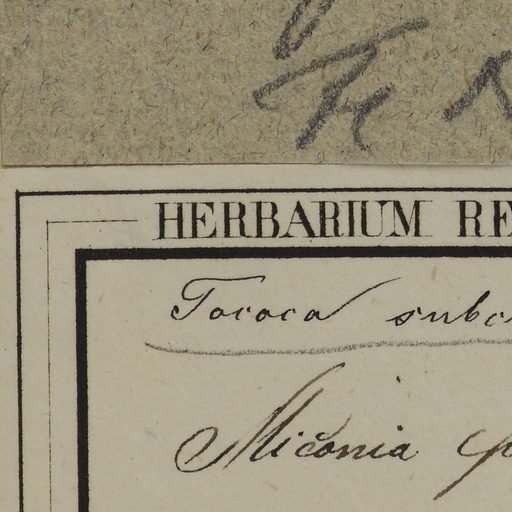 HERBARIUM RE
Tococa subc
Miconia